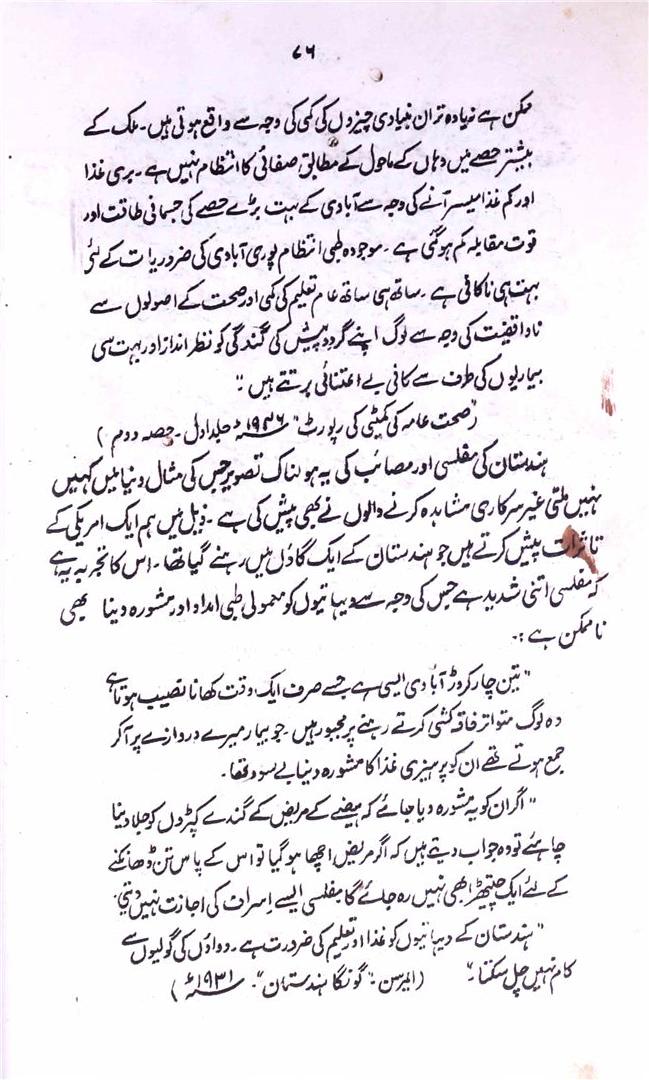 ۷۶
ممکن ہے زیادہ تر ان بنیادی چیزوں کی کمی کی وجہ سے واقع ہوتی ہیں۔ ملک کے
بیشتر حصے میں وہاں کے ماحول کے مطابق صفائی کا انتظام نہیں ہے۔ بری غذا
اور کم غذا میسر آنے کی وجہ سے آبادی کے بہت بڑے حصے کی جسمانی طاقت اور
قوت مقابلہ کم ہو گئی ہے۔ موجودہ طبی انتظام پوری آبادی کی ضروریات کے لئے
بہت ہی ناکافی ہے۔ ساتھ ہی ساتھ عام تعلیم کی کمی اور صحت کے اصولوں سے
ناواقفیت کی وجہ سے لوگ اپنے گردوپیش کی گندگی کو نظر انداز اور بہت سی
بیماریوں کی طرف سے کافی بے اعتنائی برتتے ہیں۔"
("صحت عامہ کی کمیٹی کی رپورٹ" ۱۹۴۶ء جلد اول۔ حصہ دوم)
ہندستان کی مفلسی اور مصائب کی یہ ہولناک تصویر جس کی مثال دنیا میں کہیں
نہیں ملتی غیر سرکاری مشاہدہ کرنے والوں نے بھی پیش کی ہے۔ ذیل میں ہم ایک امریکی کے
تاثرات پیش کرتے ہیں جو ہندستان کے ایک گاؤں میں رہنے گیا تھا۔ اس کا تجربہ یہ ہے
کہ مفلسی اتنی شدید ہے جس کی وجہ سے دیہاتیوں کو معمولی طبی امداد اور مشورہ دینا بھی
ناممکن ہے:۔
"تین چار کروڑ آبادی ایسی ہے جسے صرف ایک وقت کھانا نصیب ہوتا ہے
وہ لوگ متواتر فاقہ کشی کرتے رہنے پر مجبور ہیں۔ جو بیمار میرے دروازے پر آ کر
جمع ہوتے تھے ان کو پرہیزی غذا کا مشورہ دینا بے سود تھا۔
"اگر ان کو یہ مشورہ دیا جائے کہ ہیضے کے مریض کے گندے کپڑوں کو جلا دینا
چاہئے تو وہ جواب دیتے ہیں کہ اگر مریض اچھا ہو گیا تو اس کے پاس تن ڈھانکنے
کے لئے ایک چیتھڑا بھی نہیں رہ جائے گا۔ مفلسی ایسے اسراف کی اجازت نہیں دیتی۔
"ہندستان کے دیہاتیوں کو غذا اور تعلیم کی ضرورت ہے۔ دواؤں کی گولیوں سے
کام نہیں چل سکتا۔" (ایمرسن۔ "گونگا ہندستان"۔ ۱۹۳۱ء)